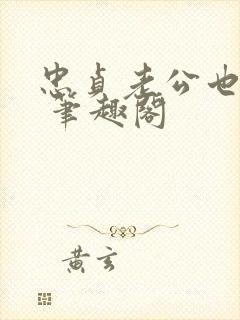 忠贞老公也
笔趣阁
黄玄